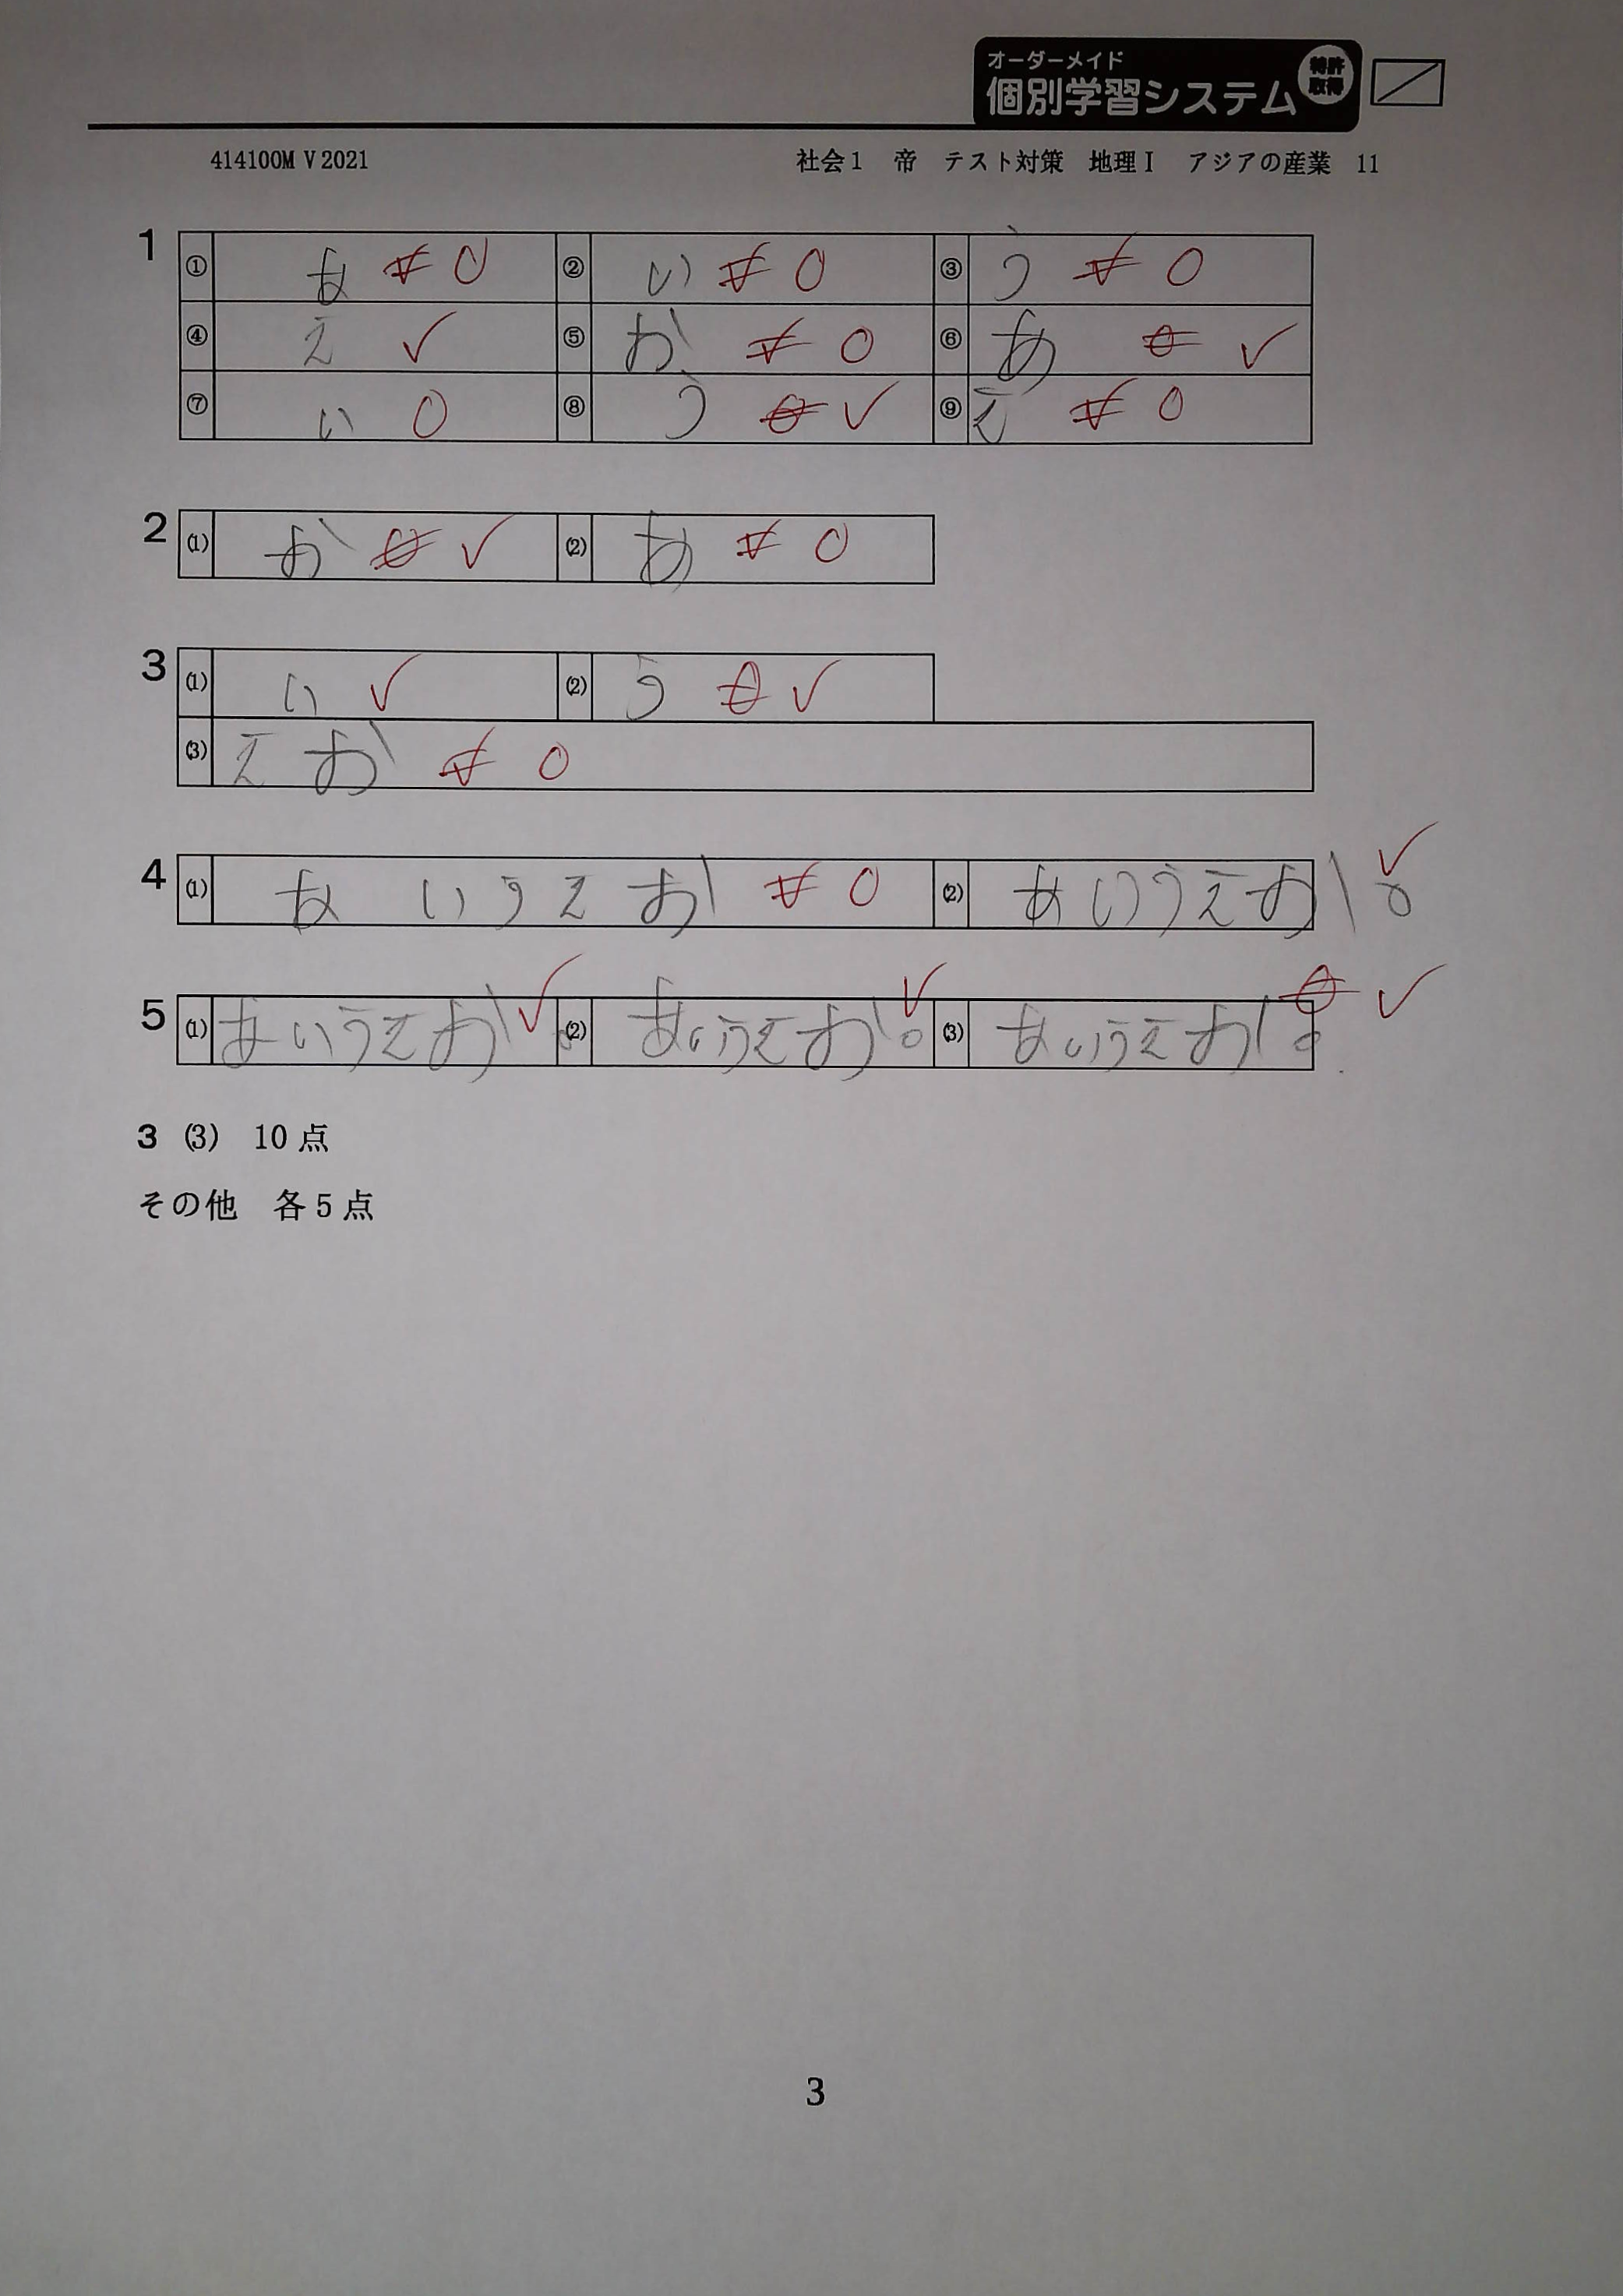 オーダーメイド
個別学習システム
特許
取得
414100M V2021 社会1 帝 テスト対策 地理Ⅰ アジアの産業 11
1 ① あ ✓ 0 ② い ✓ 0 ③ う ✓ 0
④ え ✓ ⑤ お ✓ 0 ⑥ あ 0 ✓
⑦ い 0 ⑧ う 0 ✓ ⑨ え ✓ 0
2 (1) お 0 ✓ (2) あ ✓ 0
3 (1) い ✓ (2) う 0 ✓
(3) えお ✓ 0
4 (1) あいうえお ✓ 0 (2) あいうえお。 ✓
5 (1) あいうえお。 ✓ (2) あいうえお。 ✓ (3) あいうえお。 0 ✓
3 (3) 10点
その他 各5点
3